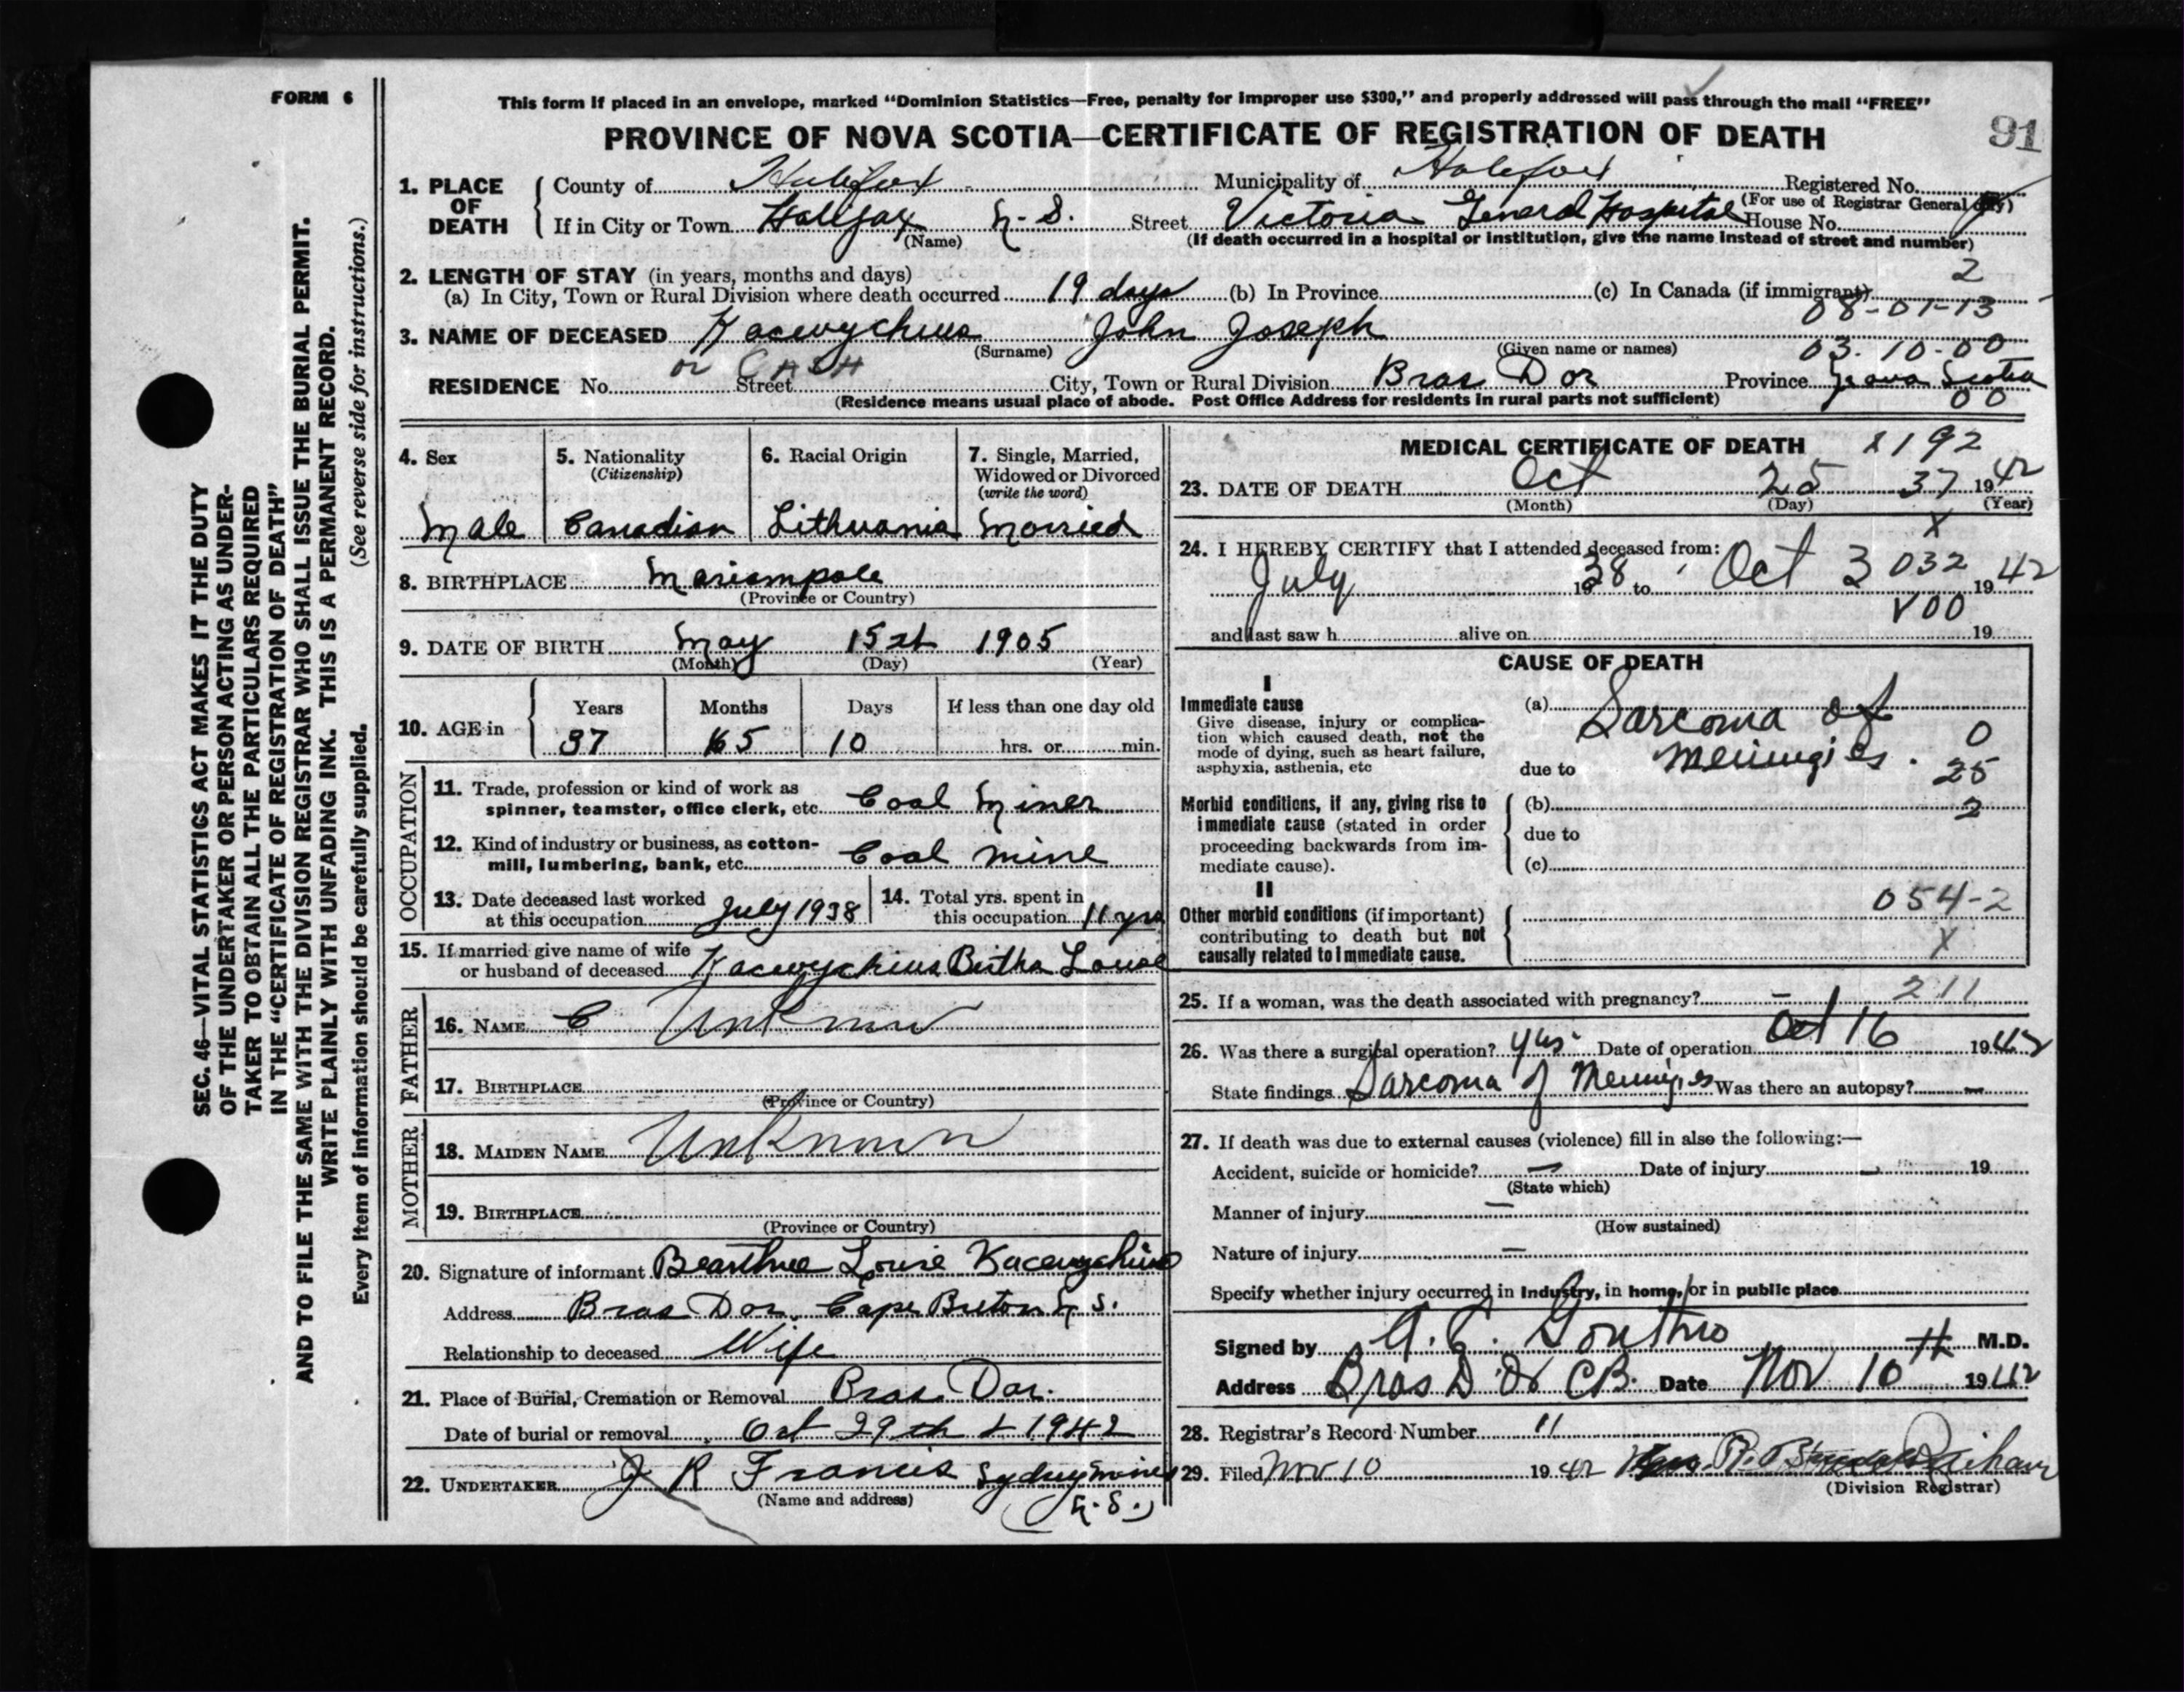 FORM 6
This form if placed in an envelope, marked “Dominion Statistics—Free, penalty for improper use $300,” and properly addressed will pass through the mail “FREE”
PROVINCE OF NOVA SCOTIA—CERTIFICATE OF REGISTRATION OF DEATH
91
SEC. 46—VITAL STATISTICS ACT MAKES IT THE DUTY
OF THE UNDERTAKER OR PERSON ACTING AS UNDER-
TAKER TO OBTAIN ALL THE PARTICULARS REQUIRED
IN THE “CERTIFICATE OF REGISTRATION OF DEATH”
AND TO FILE THE SAME WITH THE DIVISION REGISTRAR WHO SHALL ISSUE THE BURIAL PERMIT.
WRITE PLAINLY WITH UNFADING INK. THIS IS A PERMANENT RECORD.
Every item of information should be carefully supplied. (See reverse side for instructions.)
1. PLACE OF DEATH
County of Halifax Municipality of Halifax Registered No.
(For use of Registrar General only)
If in City or Town Halifax N.S. Street Victoria General Hospital House No.
(Name) (If death occurred in a hospital or institution, give the name instead of street and number)
2. LENGTH OF STAY (in years, months and days) 2
(a) In City, Town or Rural Division where death occurred 19 days (b) In Province (c) In Canada (if immigrant)
08-01-13
3. NAME OF DECEASED Kacewychius John Joseph
(Surname) (Given name or names) 03.10-00
or CASH
RESIDENCE No. Street City, Town or Rural Division Bras Dor Province Nova Scotia
(Residence means usual place of abode. Post Office Address for residents in rural parts not sufficient) 00
4. Sex
Male
5. Nationality
(Citizenship)
Canadian
6. Racial Origin
Lithuania
7. Single, Married,
Widowed or Divorced
(write the word)
Married
8. BIRTHPLACE Mariampole
(Province or Country)
9. DATE OF BIRTH May 15st 1905
(Month) (Day) (Year)
10. AGE in
Years Months Days If less than one day old
37 5 10 hrs. or min.
OCCUPATION
11. Trade, profession or kind of work as
spinner, teamster, office clerk, etc. Coal Miner
12. Kind of industry or business, as cotton-
mill, lumbering, bank, etc. Coal mine
13. Date deceased last worked
at this occupation July 1938
14. Total yrs. spent in
this occupation 11 yrs
15. If married give name of wife
or husband of deceased Kacewychius Bertha Louise
FATHER
16. NAME C Unknown
17. BIRTHPLACE
(Province or Country)
MOTHER
18. MAIDEN NAME Unknown
19. BIRTHPLACE
(Province or Country)
20. Signature of informant Louise Kacewychius
Address Bras Dor, Cape Breton N.S.
Relationship to deceased Wife
21. Place of Burial, Cremation or Removal Bras Dor.
Date of burial or removal Oct 29th 1942
22. UNDERTAKER J R Francis Sydney Mines
(Name and address) (N.S.)
MEDICAL CERTIFICATE OF DEATH 192
23. DATE OF DEATH Oct 25 37 1942
(Month) (Day) (Year)
X
24. I HEREBY CERTIFY that I attended deceased from:
July 1938 to Oct 3 032 1942
V00
and last saw h alive on 19
CAUSE OF DEATH
I
Immediate cause
Give disease, injury or complica-
tion which caused death, not the
mode of dying, such as heart failure,
asphyxia, asthenia, etc
(a) Sarcoma of
due to Meninges. 0
25
Morbid conditions, if any, giving rise to
immediate cause (stated in order
proceeding backwards from im-
mediate cause).
(b) 2
due to
(c)
II
Other morbid conditions (if important)
contributing to death but not
causally related to immediate cause.
054-2
X
25. If a woman, was the death associated with pregnancy? – 211
26. Was there a surgical operation? yes Date of operation Oct 16 1942
State findings Sarcoma of Meninges Was there an autopsy? —
27. If death was due to external causes (violence) fill in also the following:—
Accident, suicide or homicide? — Date of injury — 19
(State which)
Manner of injury —
(How sustained)
Nature of injury —
Specify whether injury occurred in Industry, in home, or in public place
Signed by M.D.
Address Bras D'Or CB. Date Nov 10th 1942
28. Registrar's Record Number 11
29. Filed Nov 10 1942
(Division Registrar)